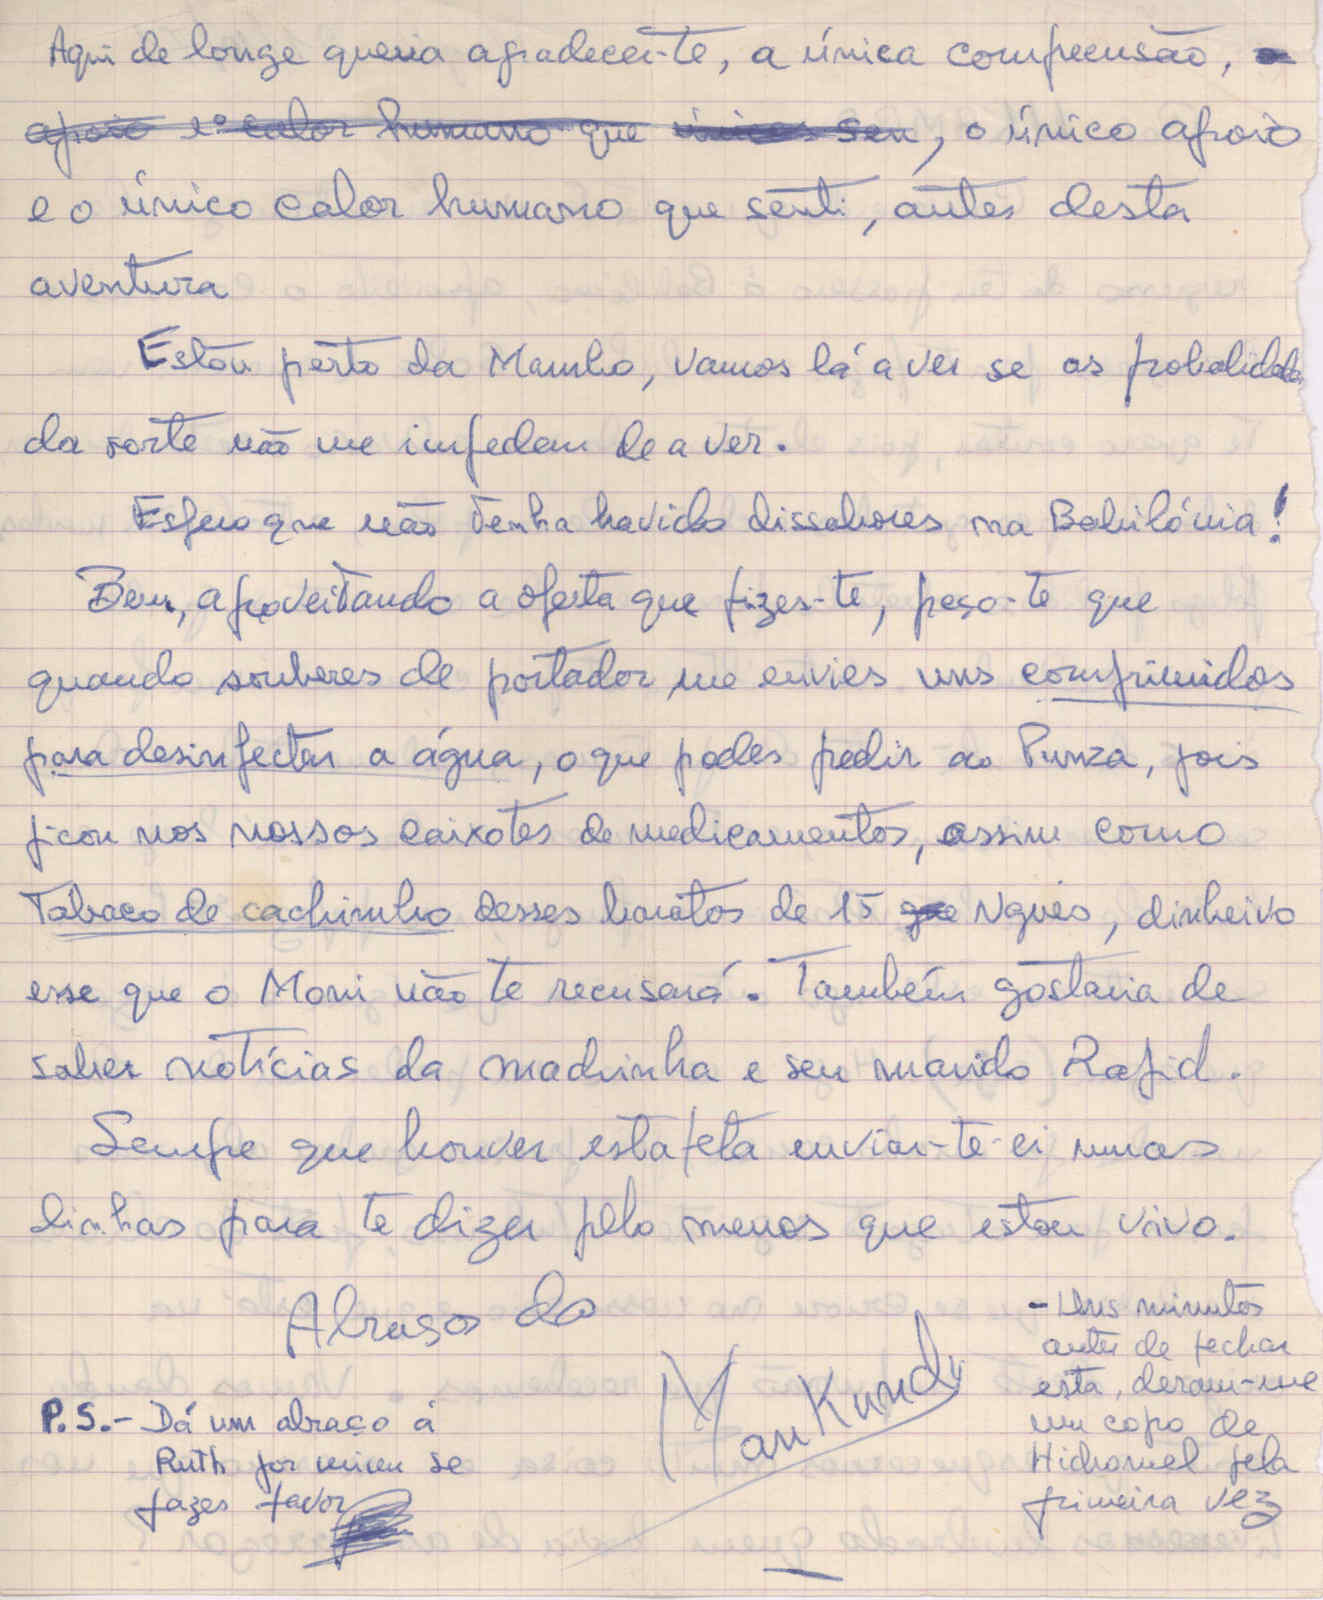 Aqui de longe queria agradecer-te, a única compreensão, o
apoio e o calor humano que única sen, o único apoio
e o único calor humano que senti, antes desta
aventura
Estou perto da Mamho, vamos lá a ver se as probalidades
da sorte não me impedem de a ver.
Espero que não tenha havido dissabores na Babilónia!
Bem, aproveitando a oferta que fizes-te, peço-te que
quando souberes de portador me envies uns comprimidos
para desinfectar a água, o que podes pedir ao Punza, pois
ficou nos nossos caixotes de medicamentos, assim como
Tabaco de cachimbo desses baratos de 15 que Ngués, dinheiro
esse que o Moni não te recusará. Também gostaria de
saber notícias da madrinha e seu marido Rafid.
Sempre que houver estafeta enviar-te-ei umas
linhas para te dizer pelo menos que estou vivo.
Abraços do
ManKundy
P.S.- Dá um abraço á
Ruth por mim se
fazes favor
- Uns minutos
antes de fechar
esta, deram-me
um copo de
Hidromel pela
primeira vez